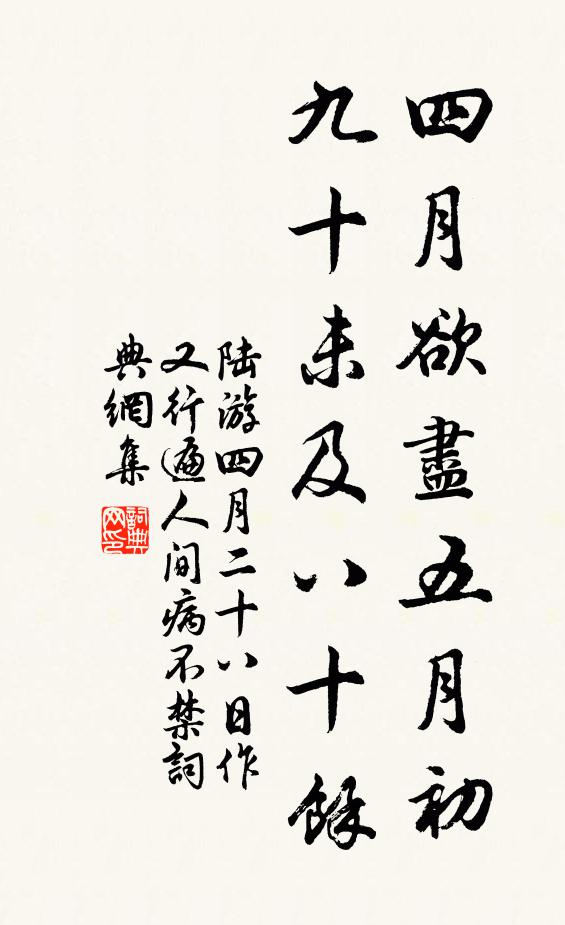 四月欲盡五月初
九十未及八十餘
陆游四月二十八日作
又行遍人间病不禁詞
典網集
詞典网印